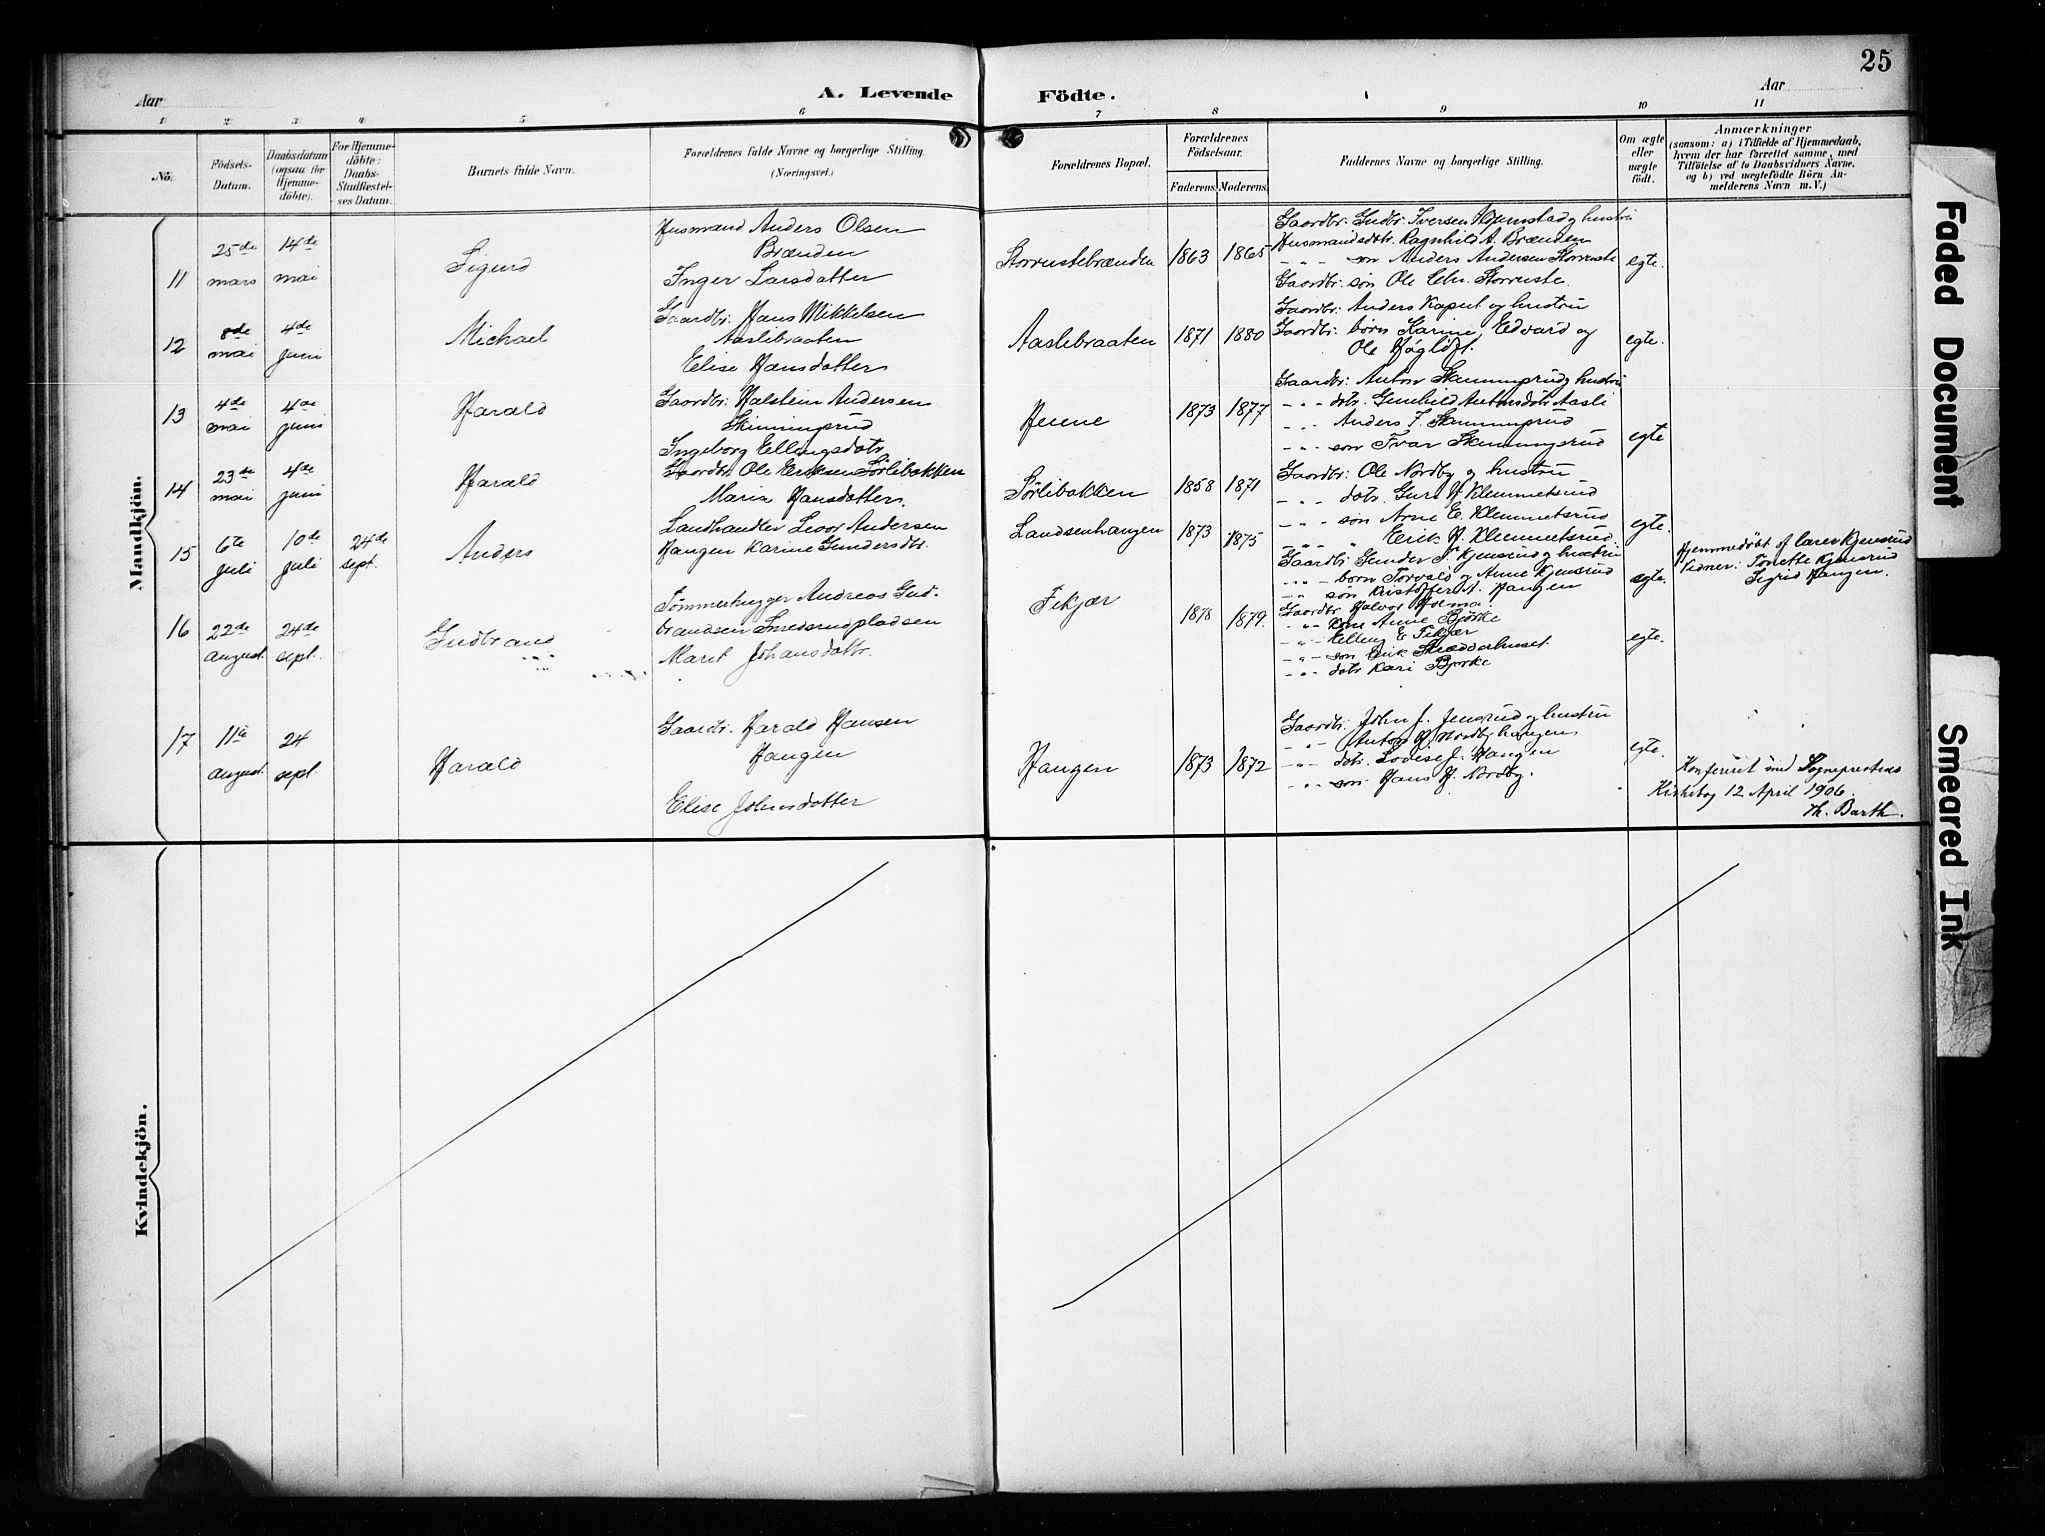 25
Aar
A. Levende
Födte.
Aar
1 2 3 4 5 6 7 8 9 10 11
No.
Födsels-
Datum.
Daabsdatum
(ogsaa for
Hjemme-
döbte).
For Hjemme-
döbte:
Daabs-
Stadfæstel-
ses Datum.
Barnets fulde Navn.
Forældrenes fulde Navne og borgerlige Stilling.
(Næringsvei.)
Forældrenes Bopæl.
Forældrenes
Födselsaar.
Faderens.
Moderens.
Faddernes Navne og borgerlige Stilling.
Om ægte
eller
uægte
födt.
Anmærkninger
(saasom: a) i Tilfælde af Hjemmedaab,
hvem der har forrettet samme, med
Tilföielse af to Daabsvidners Navne.
og b) ved uægtefödte Börn An-
melderens Navn m.V.)
Mandkjön.
11
25de
mars
14de
mai
Sigurd
Husmand Anders Olsen
Brænden
Inger Larsdatter
Storrustebrænden
1863
1865
Gaardbr. Gudbr. Iversen Hjemstad og hustru
Husmandsdatr. Ragnhild A. Brænden
- " - søn Anders Andersen Storruste
Gaardbr. søn Ole Chr. Storruste.
egte.
12
8de
mai
4de
juni
Michael
Gaardbr: Hans Mikkelsen
Aaslibraaten
Elise Hansdatter
Aaslebraaten
1871
1880
Gaardbr: Anders Koput og hustru
Gaardbr: børn Karine, Edvard og
Ole Høgløft.
egte.
13
4de
mai
4de
juni
Harald
Gaardbr: Halstein Andersen
Skinningsrud
Ingeborg Ellingsdatr
Heiene
1873
1877
Gaardbr: Anton Skinningsrud og hustru
- " - datr. Gunhild Antonsdatr Aasli
- " - Anders I. Skinningsrud
- " - søn Ivar Skinningsrud
egte
14
23de
mai
4de
juni
Harald
Gaardbr Ole Eriksen Sørlibakken
Maria Hansdatter.
Sørlibakken
1858
1871
Gaardbr: Ole Nordby og hustru
- " - datr. Guri H. Klemmetsrud
- " - søn Arne E. Klemmetsrud
- " - " Erik H. Klemmetsrud.
egte.
15
6te
juli
10de
juli
24de
sept.
Anders
Landhandler Levor Andersen
Hangen Karine Gundersdtr.
Landsenhangen
1873
1875
Gaardbr Gunder T. Kjensrud og hustru
- " - børn Torvald og Anne Kjensrud
- " - søn Kristoffer A. Hangen
egte.
Hjemmedøbt af lærer Kjensrud
Vidner: Tonette Kjensrud
Sigrid Hangen.
16
22de
august.
24de
sept.
Gudbrand
Tømmerhugger Andreas Gud-
brandsen Smedsrudpladsen
Marit Johansdattr.
Fekjær
1878
1879.
Gaardbr Halvor Holma.
- " - Kone Anne Bjørke
- " - Elling E. Fekjær
- " - søn Erik Skrædderhuset.
- " - datr Kari Bjørke
egte.
17
11te
august.
24
sept.
Harald
Gaardbr. Harald Hansen
Hangen
Elise Johnsdatter
Hangen
1873
1872
Gaardbr. John J. Jensrud og hustru
- " - Anton H. Nordbyhangen,
- " - datr. Lovise J. Hangen
- " - søn Hans H. Nordby.
egte.
Konfereret med Sogneprestens
Kirkebog 12 April 1906.
Th. Barth.
Kvindekjön.
Faded Document
Smeared Ink